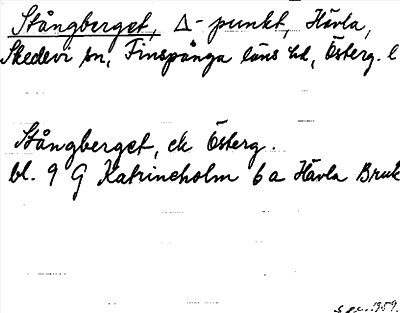 Stångberget, Δ-punkt, Hävla,
Skedevi sn, Finspånga läns hd, Österg. l
Stångberget, ek Österg.
bl. 9 G Katrineholm 6 a Hävla Bruk
1959.